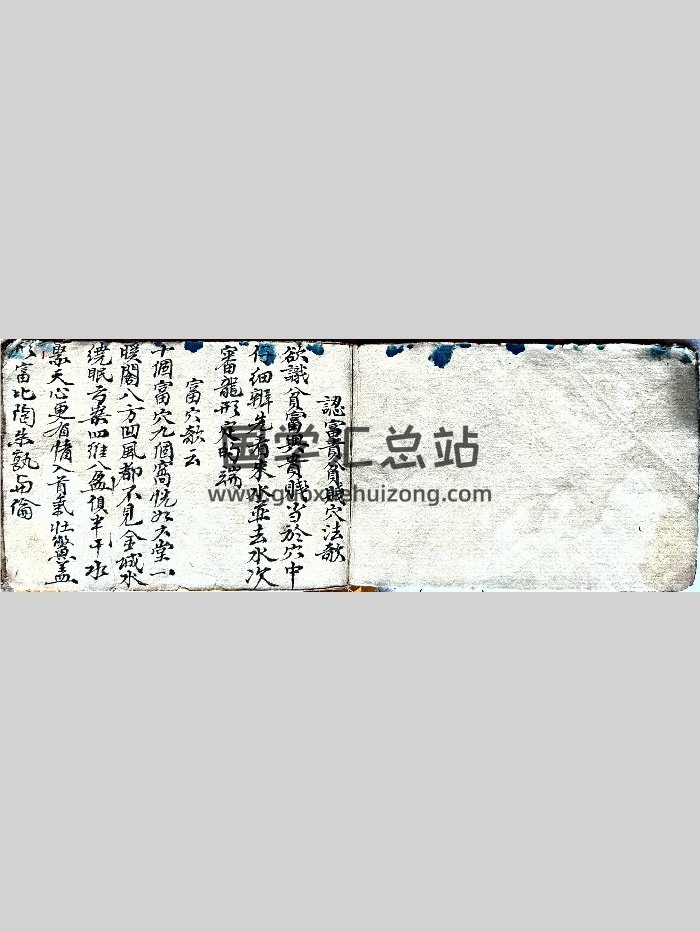 認富貴貧賤穴法歌
欲識貧富與貴賤当於穴中
仔細辨先看來水並去水次
審龍形定的端
富穴歌云
十個富穴九個窩恍如大堂一
暖閣八方凹風都不見金城水
繞眠弓案四維八 傾半千水
聚天心更有情入首氣壯鱉盖
形富比陶朱 与倫
国学汇总站
www.guoxuehuizong.com